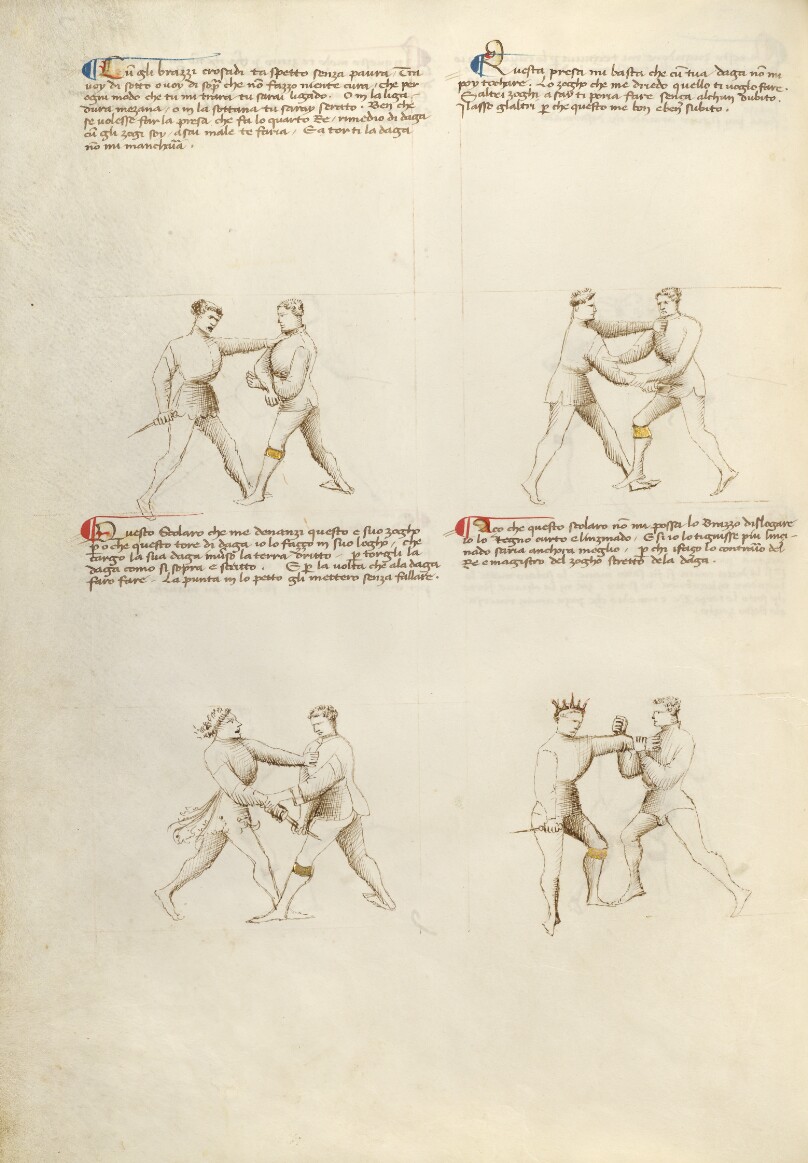 Cũ gli brazzi crosadi ta spetto senza paura. Tra
voy di sotto o voy di sopra che nõ fazzo niente cura. Che per
ogni modo che tu mi trara tu sarai ligado. O in la liga
dura mezana, o in la sottana tu saray serato. Ben che
se volesse far la presa, che fa lo quarto Re, rimedio di daga
cũ gli zogi soy, asai male te faria. E a tor ti la daga
nõ mi manchaã.
Questa presa mi basta che cũ tua daga nõ mi
poy tochare. Lo zogho che me driedo quello ti voglo fare.
E altri zoghi asay ti poria fare senza alchun dubito.
I lasse gl'altri p che questo me bon e ben subito.
Questo Scolaro che me denanzi questo e suo zogho
p o che questo tore di daga io lo fazzo in suo logho, che
targo la sua daga inũso la terra dritto, p torgli la
daga como si sopra e scritto. E p la volta che ala daga
faro fare. La punta in lo petto gli mettero senza fallare.
Aço che questo scolaro nõ mi possa lo brazzo dislogare
io lo tegno curto e linzinado. E si io lo tignisse piu linzi-
nado saria anchora meglio, p chi i fazo lo contrario del
Re e magistro del zogho stretto dela daga.